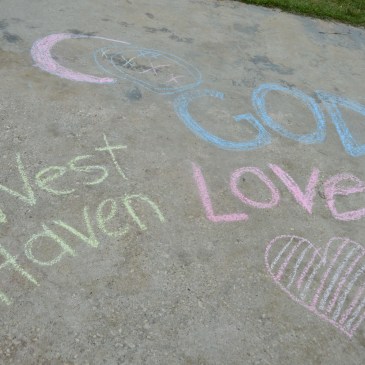 GOD
Love
West
Haven